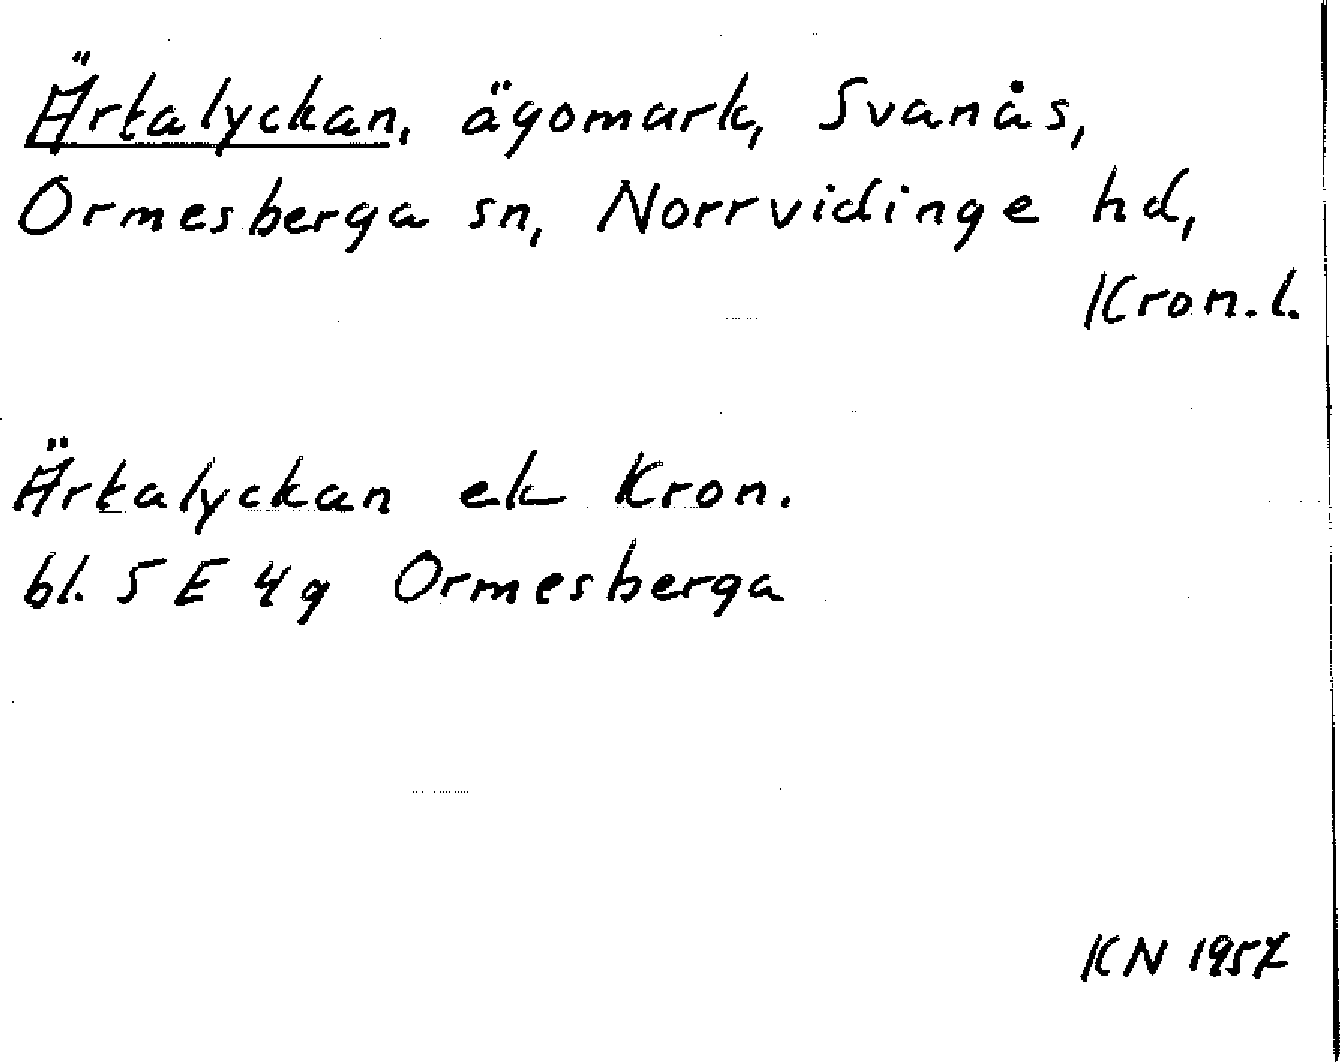 Ärtalyckan, ägomark, Svanås,
Ormesberga sn, Norrvidinge hd,
Kron. l.
Ärtalyckan ek Kron.
bl. 5 E 4 g Ormesberga
KN 1957